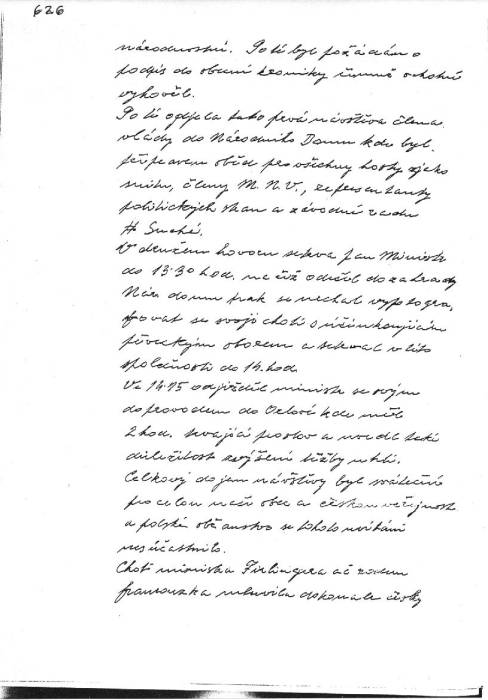 626
národnostní. Poté byl požádán o
podpis do obecní kroniky čemuž ochotně
vyhověl.
Poté odjela tato prvá návštěva člena
vlády do Národního Domu kde byl
připraven oběd pro všechny hosty z jeho
suitu, členy M.N.V., reprezentanty
politických stran a závodní radu
H Suché.
V družném hovoru setrval pan Ministr
do 13.30 hod. na to odešel do zahrady
Nár. domu pak se nechal vyfotogra
fovat se svojí chotí s účinkujícím
pěveckým sborem a setrval v této
společnosti do 14. hod
Ve 14.15 odjížděl ministr se svým
doprovodem do Orlové kde měl
2 hod. trvající proslov a uvedl také
důležitost zvýšení těžby uhlí.
Celkový dojem návštěvy byl sváteční
pro celou naši obec a českou veřejnost
a polské občanstvo se tohoto uvítání
nezúčastnilo.
Choť ministra Firlingera ač rodem
francouzka mluvila dokonale česky